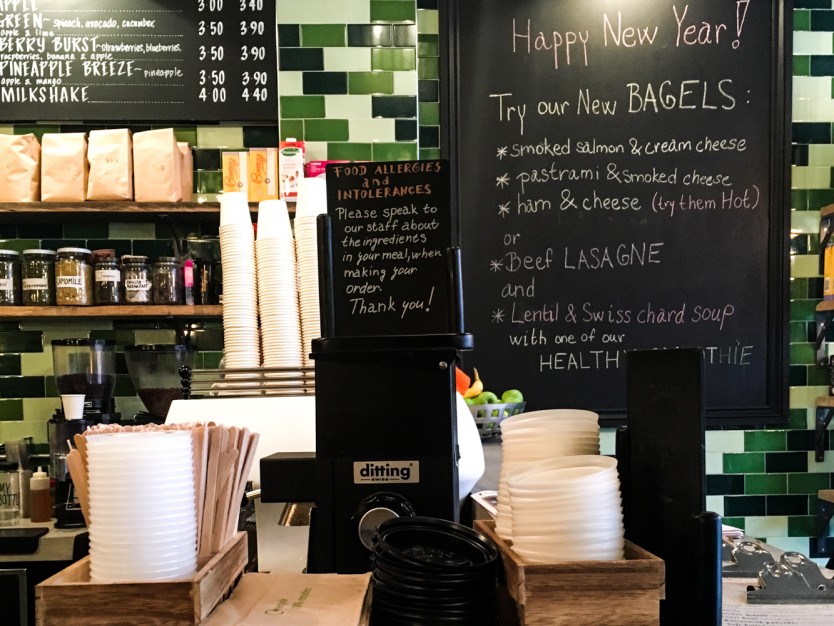 APPLE 3·00 3·40
GREEN~ spinach, avocado, cucumber,
apple & lime 3·50 3·90
BERRY BURST~ strawberries, blueberries,
raspberries, banana & apple 3·50 3·90
PINEAPPLE BREEZE~ pineapple
apple & mango 3·50 3·90
MILKSHAKE 4·00 4·40
FOOD ALLERGIES
and
INTOLERANCES
Please speak to
our staff about
the ingredients
in your meal, when
making your
order.
Thank you!
Happy New Year!
Try our New BAGELS:
*smoked salmon & cream cheese
*pastrami & smoked cheese
*ham & cheese (try them Hot)
or
*Beef LASAGNE
and
*Lentil & Swiss chard soup
with one of our
HEALTHY
CAMOMILE
ditting
SWISS